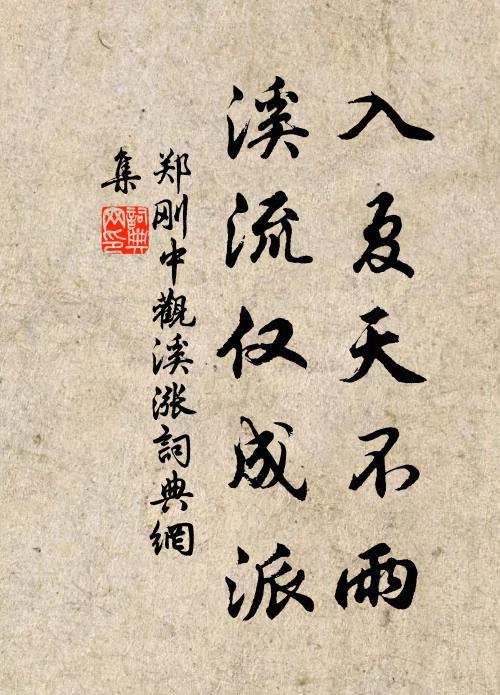 入夏天不雨
溪流仅成派
郑刚中觀溪漲詞典網
集
詞典
网印